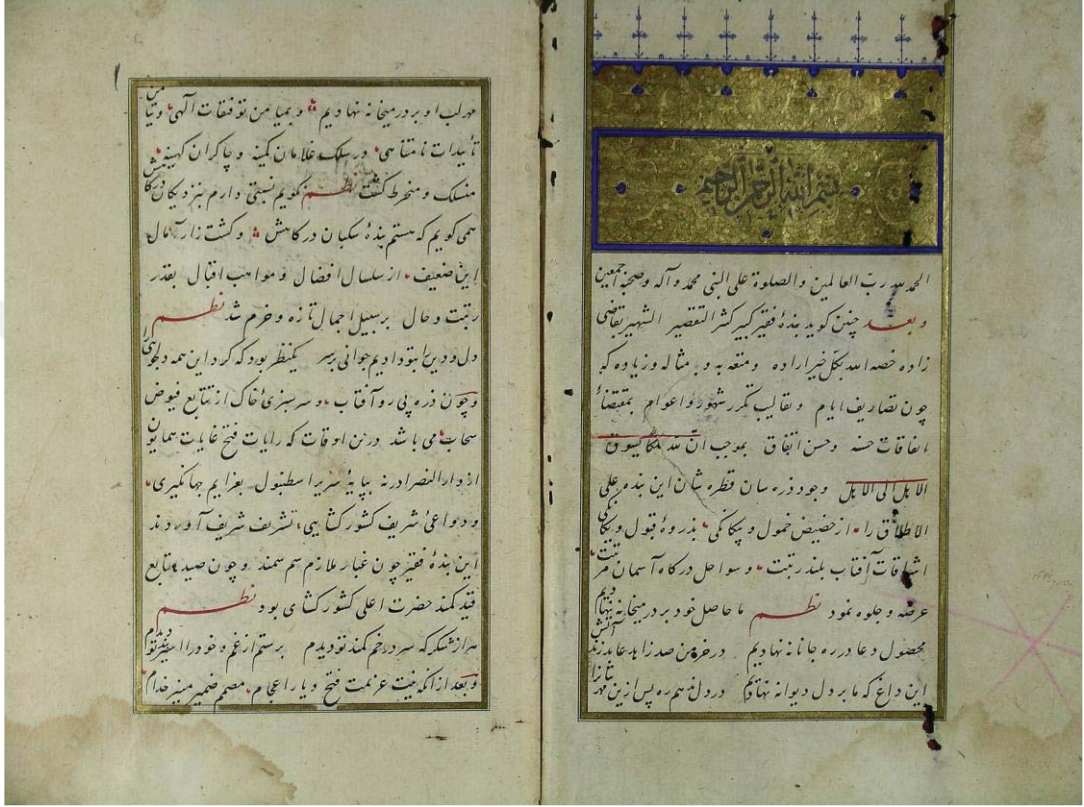 بسم الله الرحمن الرحيم
الحمد لله رب العالمين والصلوة على النبى محمد وآله وصحبه اجمعين
و بعد چنين كويد بندهٔ فقير كبير كثر التقصير الشهير بقاضى
زاده خصه الله بكل خير اراده و متعه به و بمثاله و زياده كه
چون تصاريف ايام و تقاليب تكرر شهور و اعوام بمقتضاى
اتفاقات حسنه و حسن اتفاق بموجب ان لله ملكا يسوق
الاهل الى الاهل وجود ذره سان قطره شان اين بنده على
الاطلاق را از حضيض خمول و بيكانكى بذروهٔ قبول و يكانكى
اشراقات آفتاب بلند رتبت و سواحل دركاه آسمان مرتبت
عرضه و جلوه نمود نظم ما حاصل خود بر در ميخانه نهاديم
محصول دعا در ره جانانه نهاديم در خرمن صد زاهد عابد زند آتش
اين داغ كه ما بر دل ديوانه نهاديم در دل ندهم ره پس ازين مهر بتانرا
مهر لب او بر در ميخانه نهاديم و بميامن توفيقات آلهى و ميامن
تأييدات نامتناهى در سلك غلامان كمينه و چاكران كهينه‌ش
منسلك و منخرط كشت نظم نكويم نسبتى دارم بنزديكان دركاهت
همى كويم كه هستم بندهٔ سكبان دركاهش و كشت زار آمال
اين ضعيف از سلسال افضال و مواهب اقبال بقدر
رتبت و حال بر سبيل اجمال تازه و خرم شد نظم
دل و دين را بتو داديم جوانى بر سر يك نظر بود كه كرد اين همه دلجوى
و چون ذره پى رو آفتاب و سرسبزىٔ خاك از نتايع فيوض
سحاب مى باشد درين اوقات كه رايات فتح غايات همايون
از دار النصر ادرنه بپايهٔ سرير اسطنبول بعزايم جهانكيرى
و دواعىٔ شريف كشور كشايى تشريف شريف آوردند
اين بندهٔ فقير چون غبار ملازم سم سمند و چون صيد متابع
قيد كمند حضرت اعلى كشور كشاى بود نظم
هزار شكر كه سر در خم كمند تو ديدم برستم از غم و خود را اسير تو ديدم
و بعد از آنكه نيت عزيمت فتح ديار اعجام مصمم ضمير منير خدام